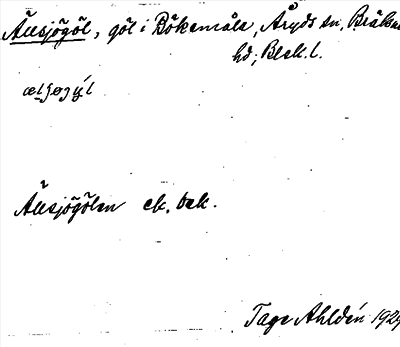 Ällsjögöl, göl i Bökemåla, Åryds sn, Bräkne
hd; Blek. l.
ælʃøgýl
Ällsjögölen ek. bek.
Tage Ahldén 1929